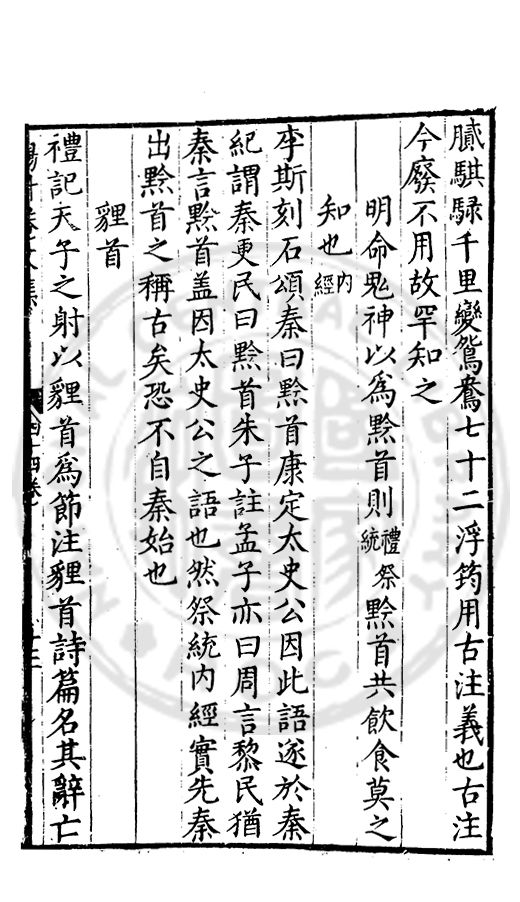 膩騏騄千里變鴛鴦七十二浮筠用古注義也古注
今廢不用故罕知之
明命鬼神以爲黔首則禮祭統黔首共飲食莫之
知也內經
李斯刻石頌秦曰黔首康定太史公因此語遂於秦
紀謂秦更民曰黔首朱子註孟子亦曰周言黎民猶
秦言黔首盖因太史公之語也然祭統內經實先秦
出黔首之稱古矣恐不自秦始也
貍首
禮記天子之射以貍首爲節注貍首詩篇名其辭亡